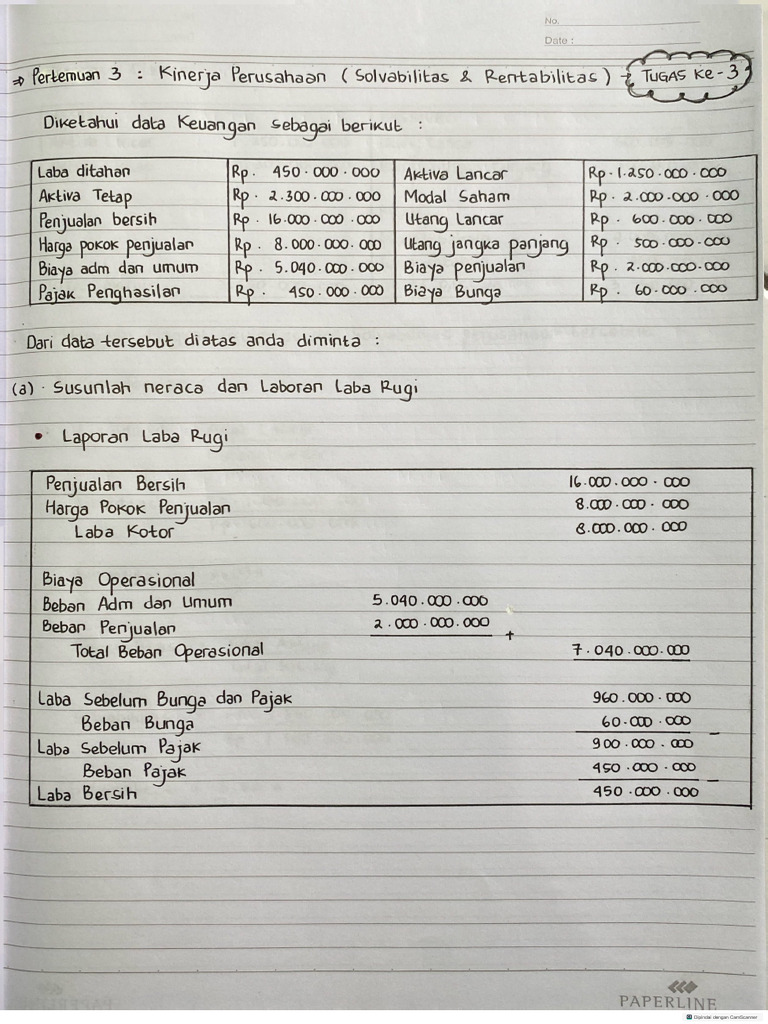 No.
Date :
⇒ Pertemuan 3 : Kinerja Perusahaan ( Solvabilitas & Rentabilitas ) → TUGAS Ke - 3
Diketahui data Keuangan sebagai berikut :
Laba ditahan Rp. 450.000.000 Aktiva Lancar Rp. 1.250.000.000
Aktiva Tetap Rp. 2.300.000.000 Modal Saham Rp. 2.000.000.000
Penjualan bersih Rp. 16.000.000.000 Utang Lancar Rp. 600.000.000
Harga pokok penjualan Rp. 8.000.000.000 Utang jangka panjang Rp. 500.000.000
Biaya adm dan umum Rp. 5.040.000.000 Biaya penjualan Rp. 2.000.000.000
Pajak Penghasilan Rp. 450.000.000 Biaya Bunga Rp. 60.000.000
Dari data tersebut diatas anda diminta :
(a) . Susunlah neraca dan Laboran Laba Rugi
• Laporan Laba Rugi
Penjualan Bersih 16.000.000.000
Harga Pokok Penjualan 8.000.000.000
Laba Kotor 8.000.000.000
Biaya Operasional
Beban Adm dan Umum 5.040.000.000
Beban Penjualan 2.000.000.000 +
Total Beban Operasional 7.040.000.000
Laba Sebelum Bunga dan Pajak 960.000.000
Beban Bunga 60.000.000 −
Laba Sebelum Pajak 900.000.000
Beban Pajak 450.000.000 −
Laba Bersih 450.000.000
PAPERLINE
Dipindai dengan CamScanner